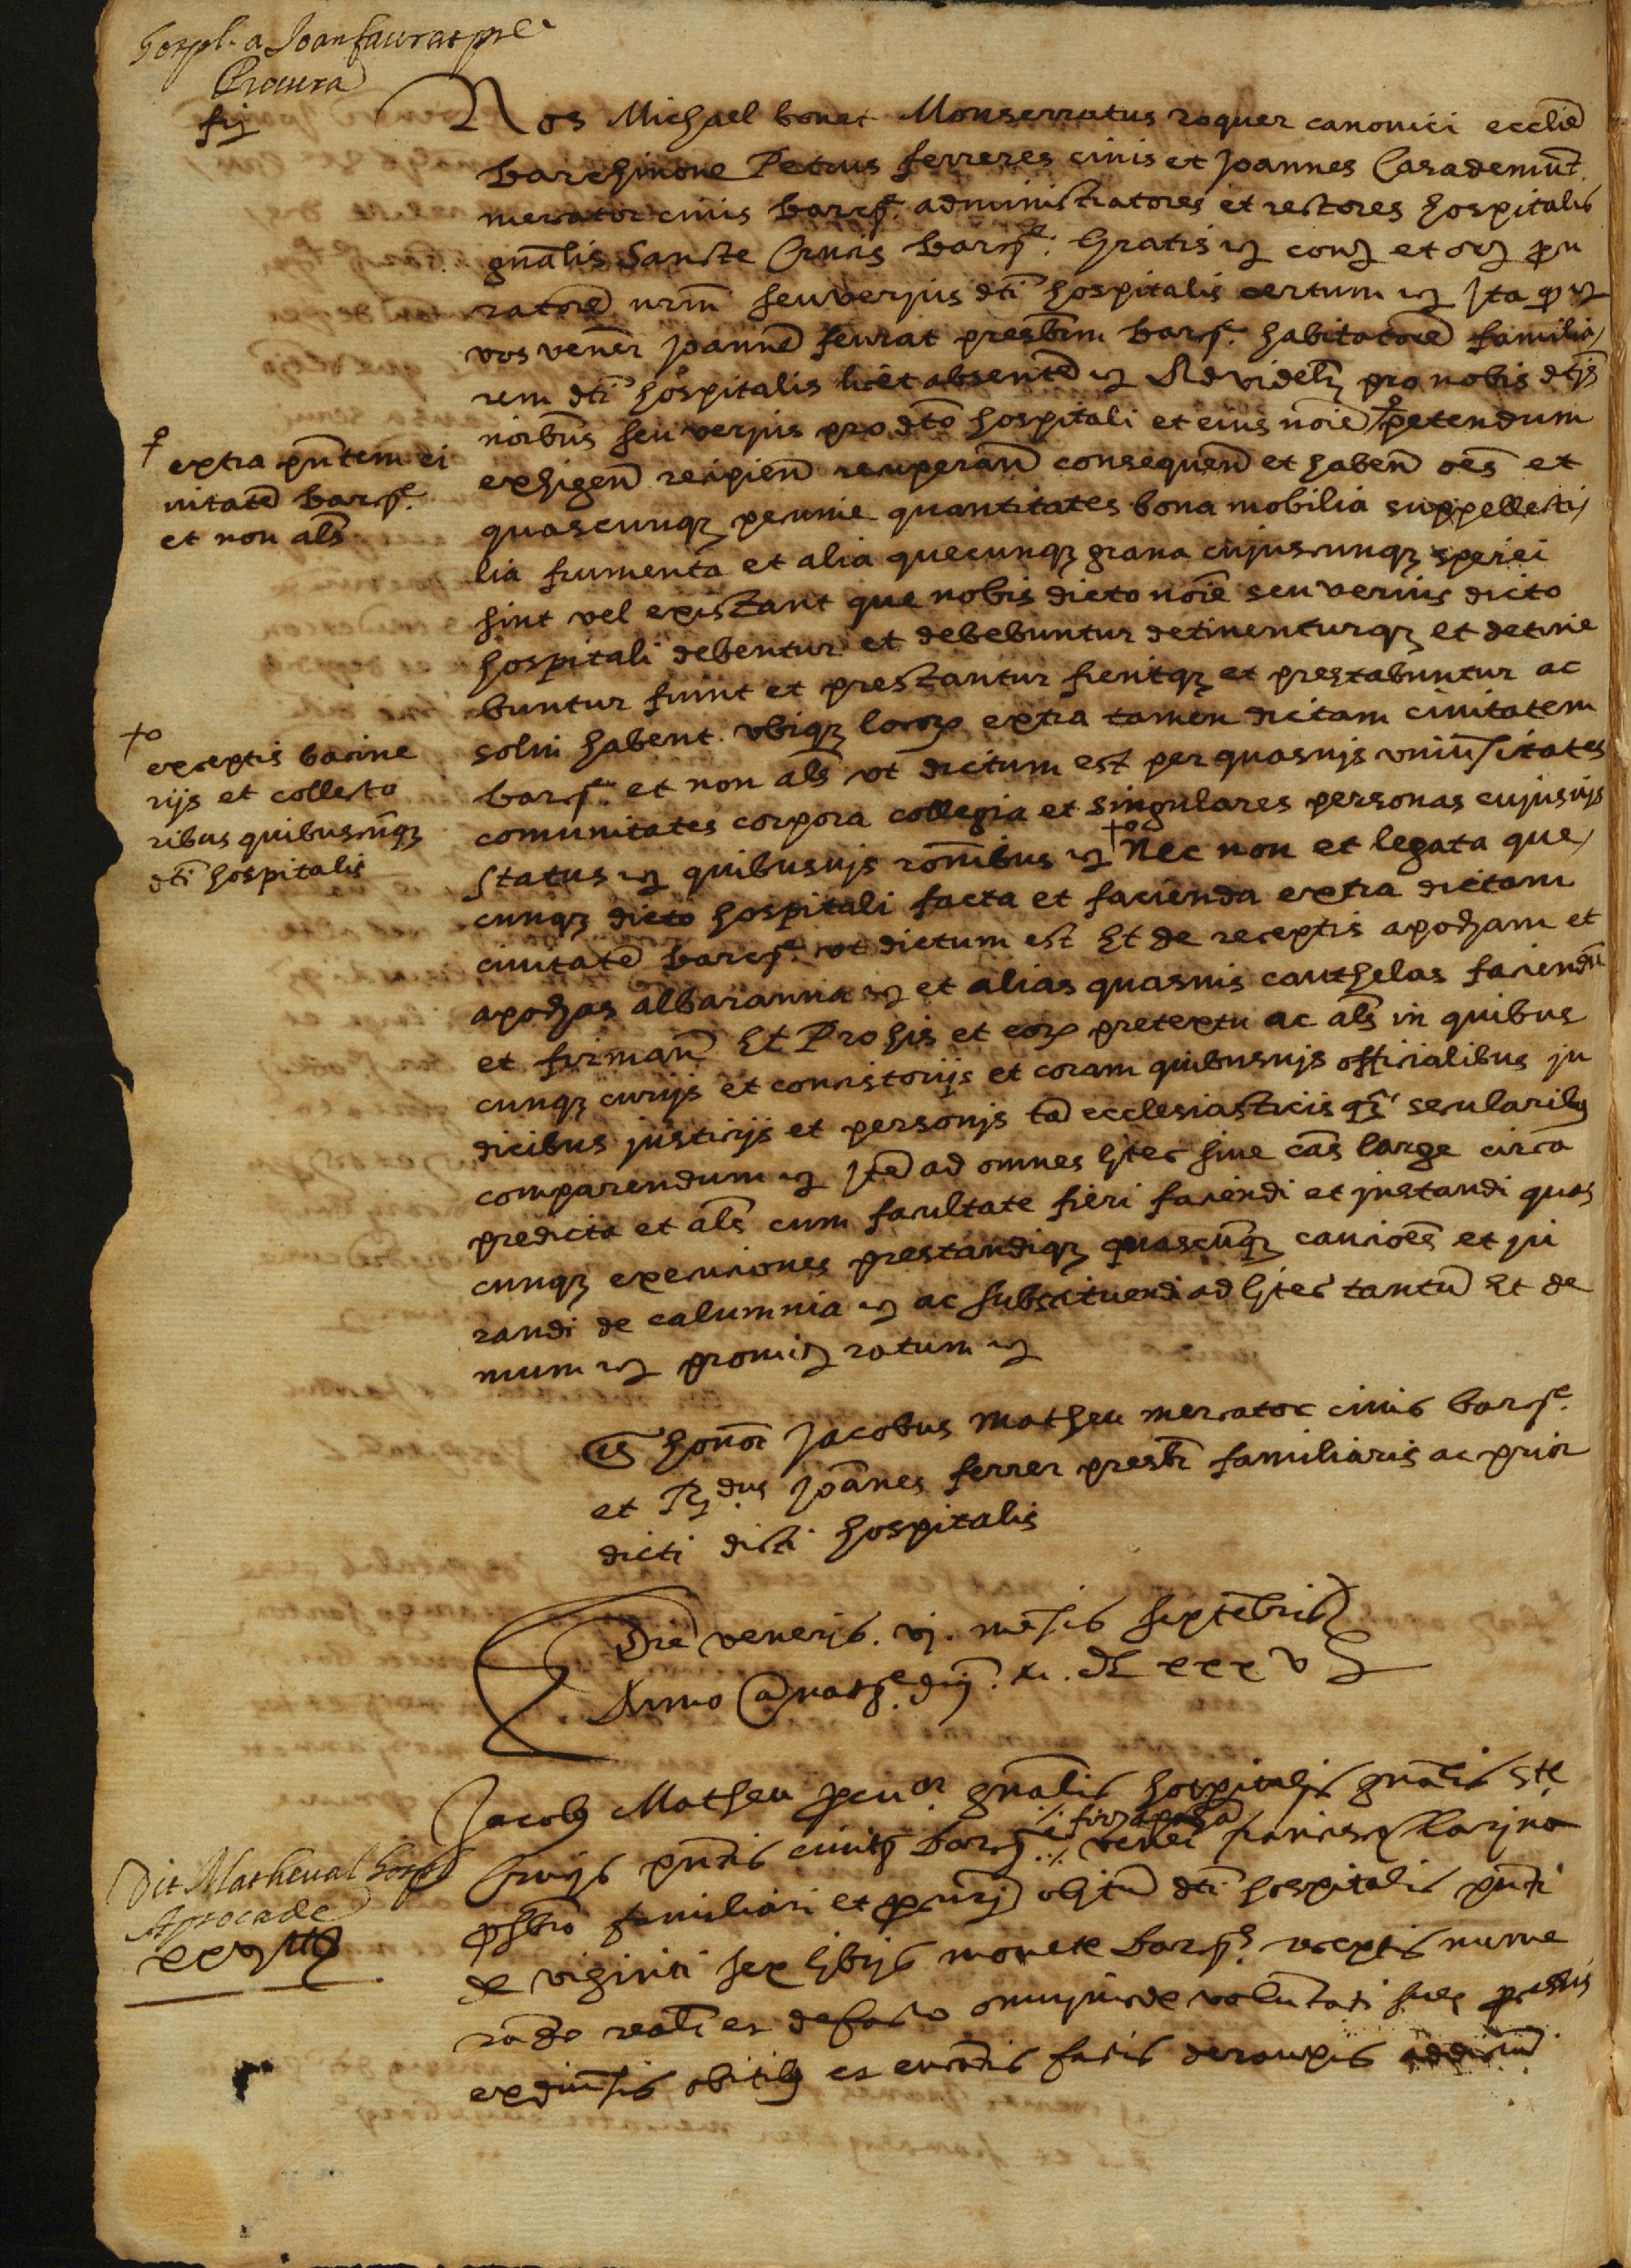 Hospl. a Joan faurat pre
Procura
fiz
Nos Michael bonet Monserratus roquer canonici ecclie
barchinone Petrus ferreres civis et Joannes Casademunt
mercator civis barcħ. administratores et rectores hospitalis
gnalis Sancte Crucis barcħ. Gratis etc conz et orz pcu
ratorē nrm seu verius dti hospitalis certum etc Ita qz etc
vos vener Joannē feurat presbrm barcħ. habitatorē familia
rem dti hospitalis licet absentē etc Ad videlz pro nobis dtis
noibus seu verius pro dto hospitali et eius noie petendum
exhigen recipien recuperan consequen et haben oes et
quascunqz pecunie quantitates bona mobilia suppellecti
lia frumenta et alia quecunqz grana cujuscunqz speciei
sint vel existant que nobis dicto noie seu verius dicto
hospitali debentur et debebuntur detinenturqz et detine
buntur fiunt et prestantur fientqz et prestabuntur ac
solvi habent ubiqz locorz extra tamen dictam civitatem
barcħ. et non als ut dictum est per quasvis universitates
comunitates corpora collegia et singulares personas cujusvis
status etc quibusvis ronibus etc Nec non et legata que
cunqz dicto hospitali facta et facienda extra dictam
civitatē barcħ. ut dictum est Et de receptis apocham et
apochas albaranna etc et alias quasvis cauthelas faciendū
et firman Et Pro his et eorz pretextu ac als in quibus
cunqz curijs et concistorijs et coram quibusvis officialibus ju
dicibus justicijs et personis tā ecclesiasticis qz secularibus
comparendum etc Itē ad omnes lites sive cās large circa
predicta et als cum facultate fieri faciendi et instandi quas
cunqz execuciones prestandiqz quascunqz cauciōes et ju
randi de calumnia etc ac substituendi ad lites tantū Et de
mum etc promitz ratum etc
extra pntem ci
vitatē barcħ.
et non als
exceptis bacine
rijs et collecto
ribus quibuscūqz
dti hospitalis
Ts honor Jacobus Matheu mercator civis barcħ.
et Rdus Joānes ferrer presbr familiaris ac prior
dicti dicti hospitalis
Die veneris. vj. mēsis septēbris
Anno a nate dnj. M. DLxxxv
Jacobz Matheu pcuor gnalis hospitalis gnalis Ste
Crucis pntis civitz barcħ. firz apocħa veneri francisco
psbro familiari et obitū dti hospitalis pnti
de viginti sex libris monete barcħ. receptis nume
rando realr et de facto omnimode voluntati sue
ex diversis obitibz et
Dit Matheu al hospl
Apoca de